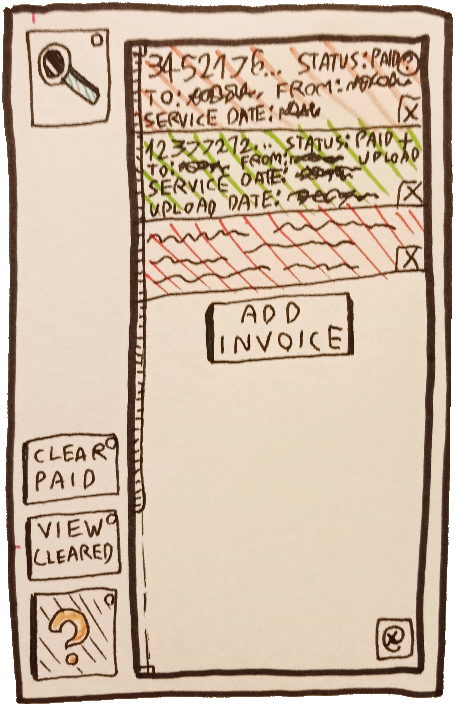 3452176... STATUS: PAID ?
TO: FROM:
SERVICE DATE:
X
12377212... STATUS: PAID +
TO: FROM: UPLOAD
SERVICE DATE:
UPLOAD DATE:
X
X
ADD
INVOICE
CLEAR
PAID
VIEW
CLEARED
?
@